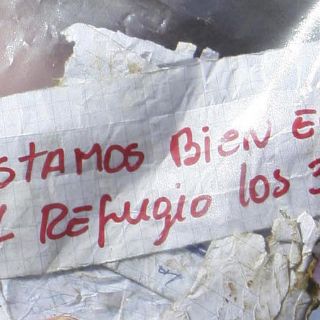 STAMOS BIEN E
L REfugio los 3